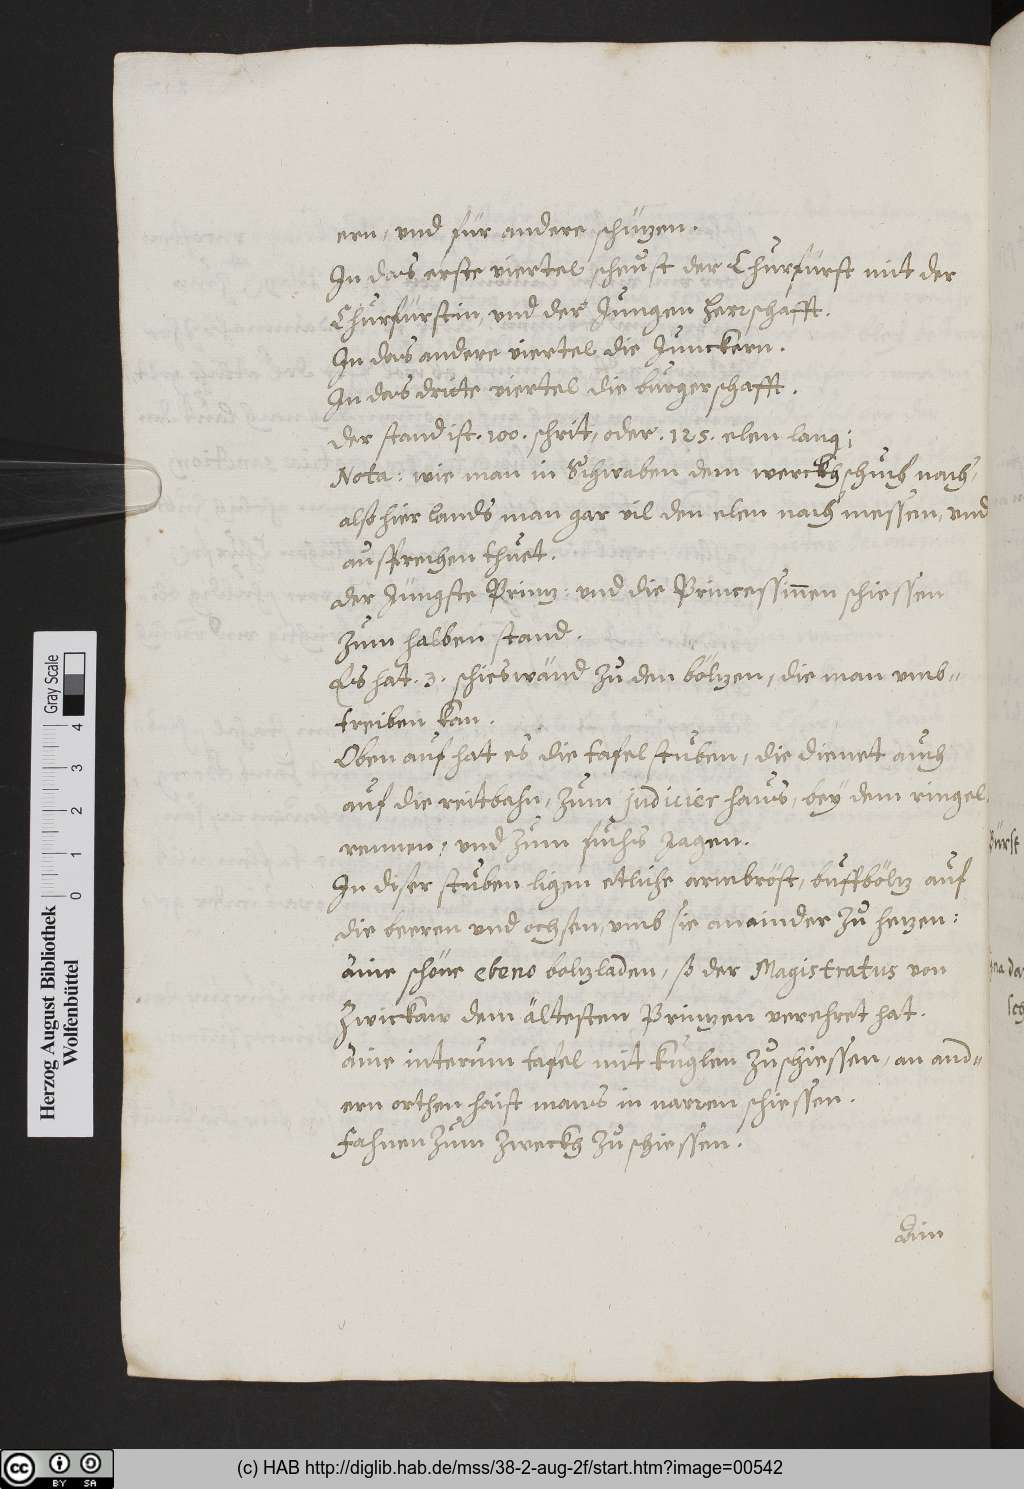 ern, und für andere schüzen.
In das erste viertel scheust der Churfürst mit der
Churfürstin, und der Jungen herrschafft.
In das andere viertel die Junckern.
In das dritte viertel die burgerschafft.
der stand ist. 100. schrit, oder. 125. elen lang;
Nota: wie man in Schwaben dem werckhschuch nach,
also hier lands man gar vil den elen nach messen, und
aussprechen thuet.
der Jüngste Prinz: und die Princessinnen schiessen
zum halben stand.
Es hat. 3. schieswänd zu den bölzen, die man umb-
treiben kan.
Oben auf hat es die tafel stuben, die dienet auch
auf die reitbahn, zum judicier haus, bey dem ringel
rennen, und zum fuchs jagen.
In diser stuben ligen etliche armbröst, buffbölz auf
die beeren und ochsen, umb sie anainder zu hezen:
aine schöne ebeno bolzladen, so der Magistratus von
Zwickaw dem ältesten Prinzen verehret hat.
aine interum tafel mit kuglen zuschiessen, an and-
ern orthen haist mans in narren schiessen.
Fahnen zum zweckh zuschiessen.
Ain
fürst
Herzog August Bibliothek
Wolfenbüttel
Gray Scale
0 1 2 3 4
cc BY SA
(c) HAB http://diglib.hab.de/mss/38-2-aug-2f/start.htm?image=00542